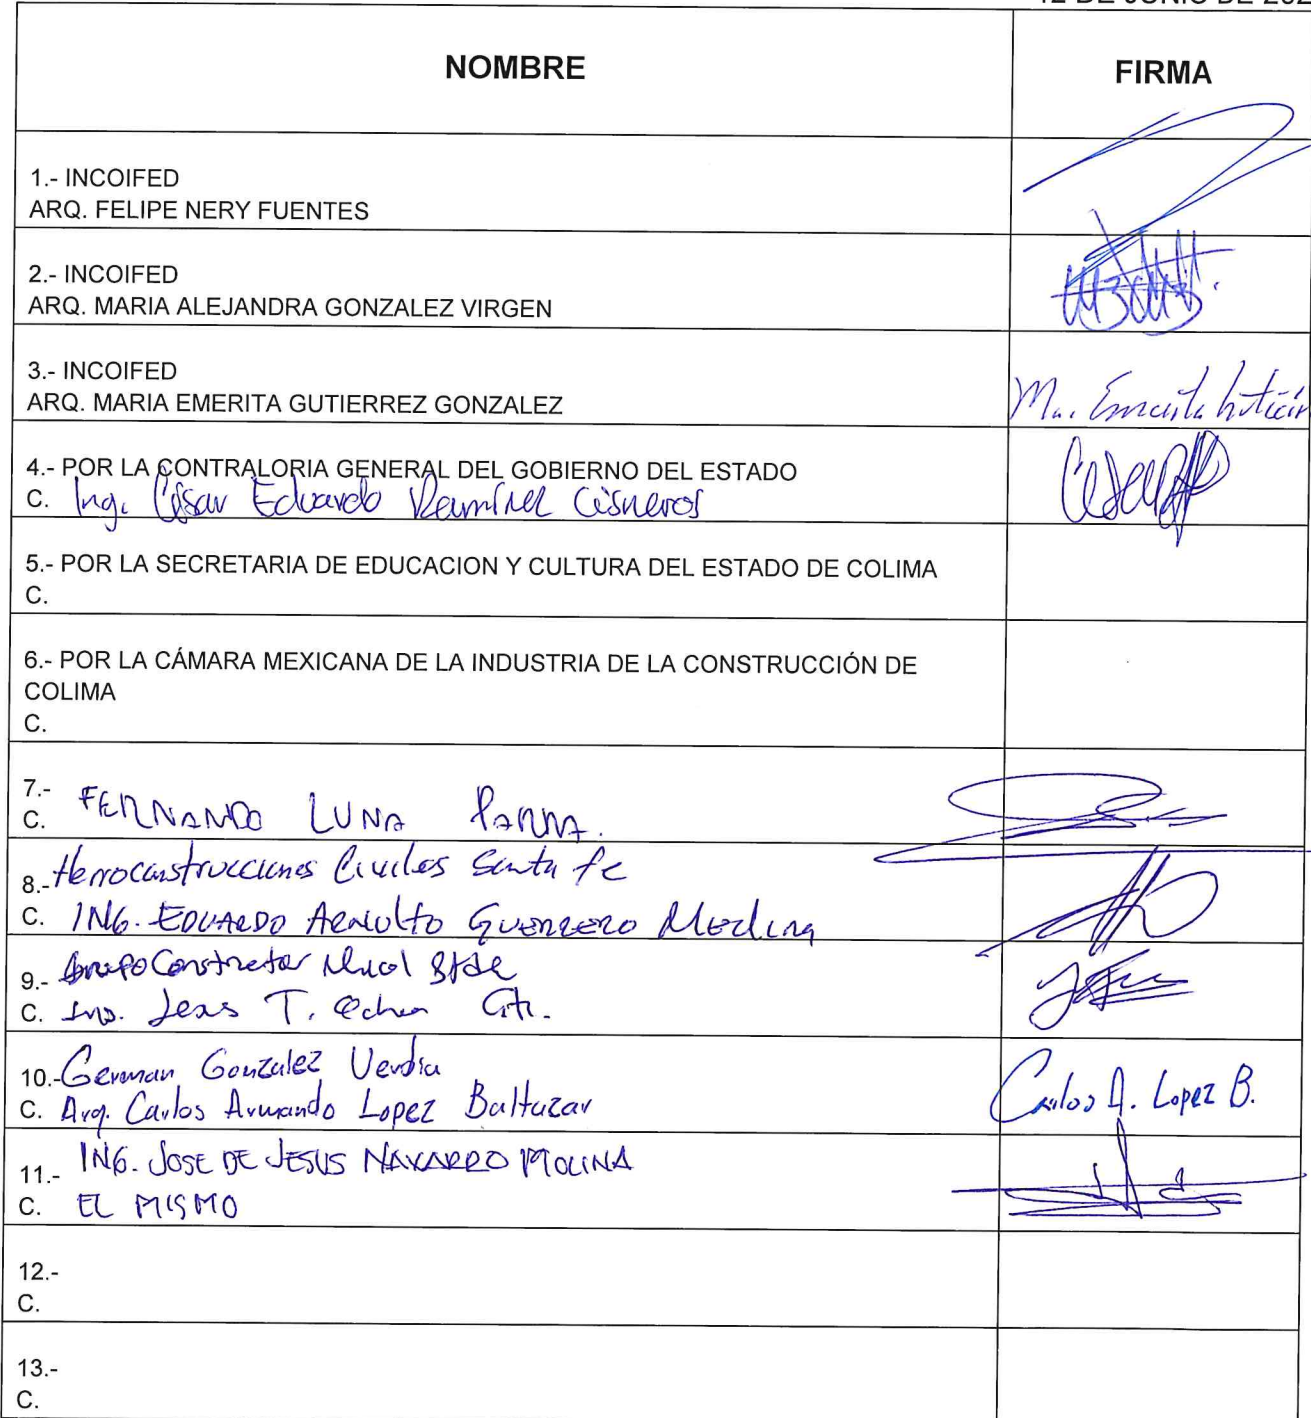 12 DE JUNIO DE 202
NOMBRE FIRMA
1.- INCOIFED
ARQ. FELIPE NERY FUENTES
2.- INCOIFED
ARQ. MARIA ALEJANDRA GONZALEZ VIRGEN
3.- INCOIFED
ARQ. MARIA EMERITA GUTIERREZ GONZALEZ Ma. Emerita
4.- POR LA CONTRALORIA GENERAL DEL GOBIERNO DEL ESTADO
C. Ing. César Eduardo Ramírez Cisneros
5.- POR LA SECRETARIA DE EDUCACION Y CULTURA DEL ESTADO DE COLIMA
C.
6.- POR LA CÁMARA MEXICANA DE LA INDUSTRIA DE LA CONSTRUCCIÓN DE
COLIMA
C.
7.-
C. FERNANDO LUNA PARRA.
8.- Herroconstrucciones Civiles Santa fe
C. ING. EDUARDO ARNULFO GUERRERO Medina
9.- Grupo Constructor
C. Ing. Jesus T. Ochoa
10.- German Gonzalez Verdia
C. Arq. Carlos Armando Lopez Baltazar Carlos A. Lopez B.
11.- ING. JOSE DE JESUS NAVARRO MOLINA
C. EL MISMO
12.-
C.
13.-
C.